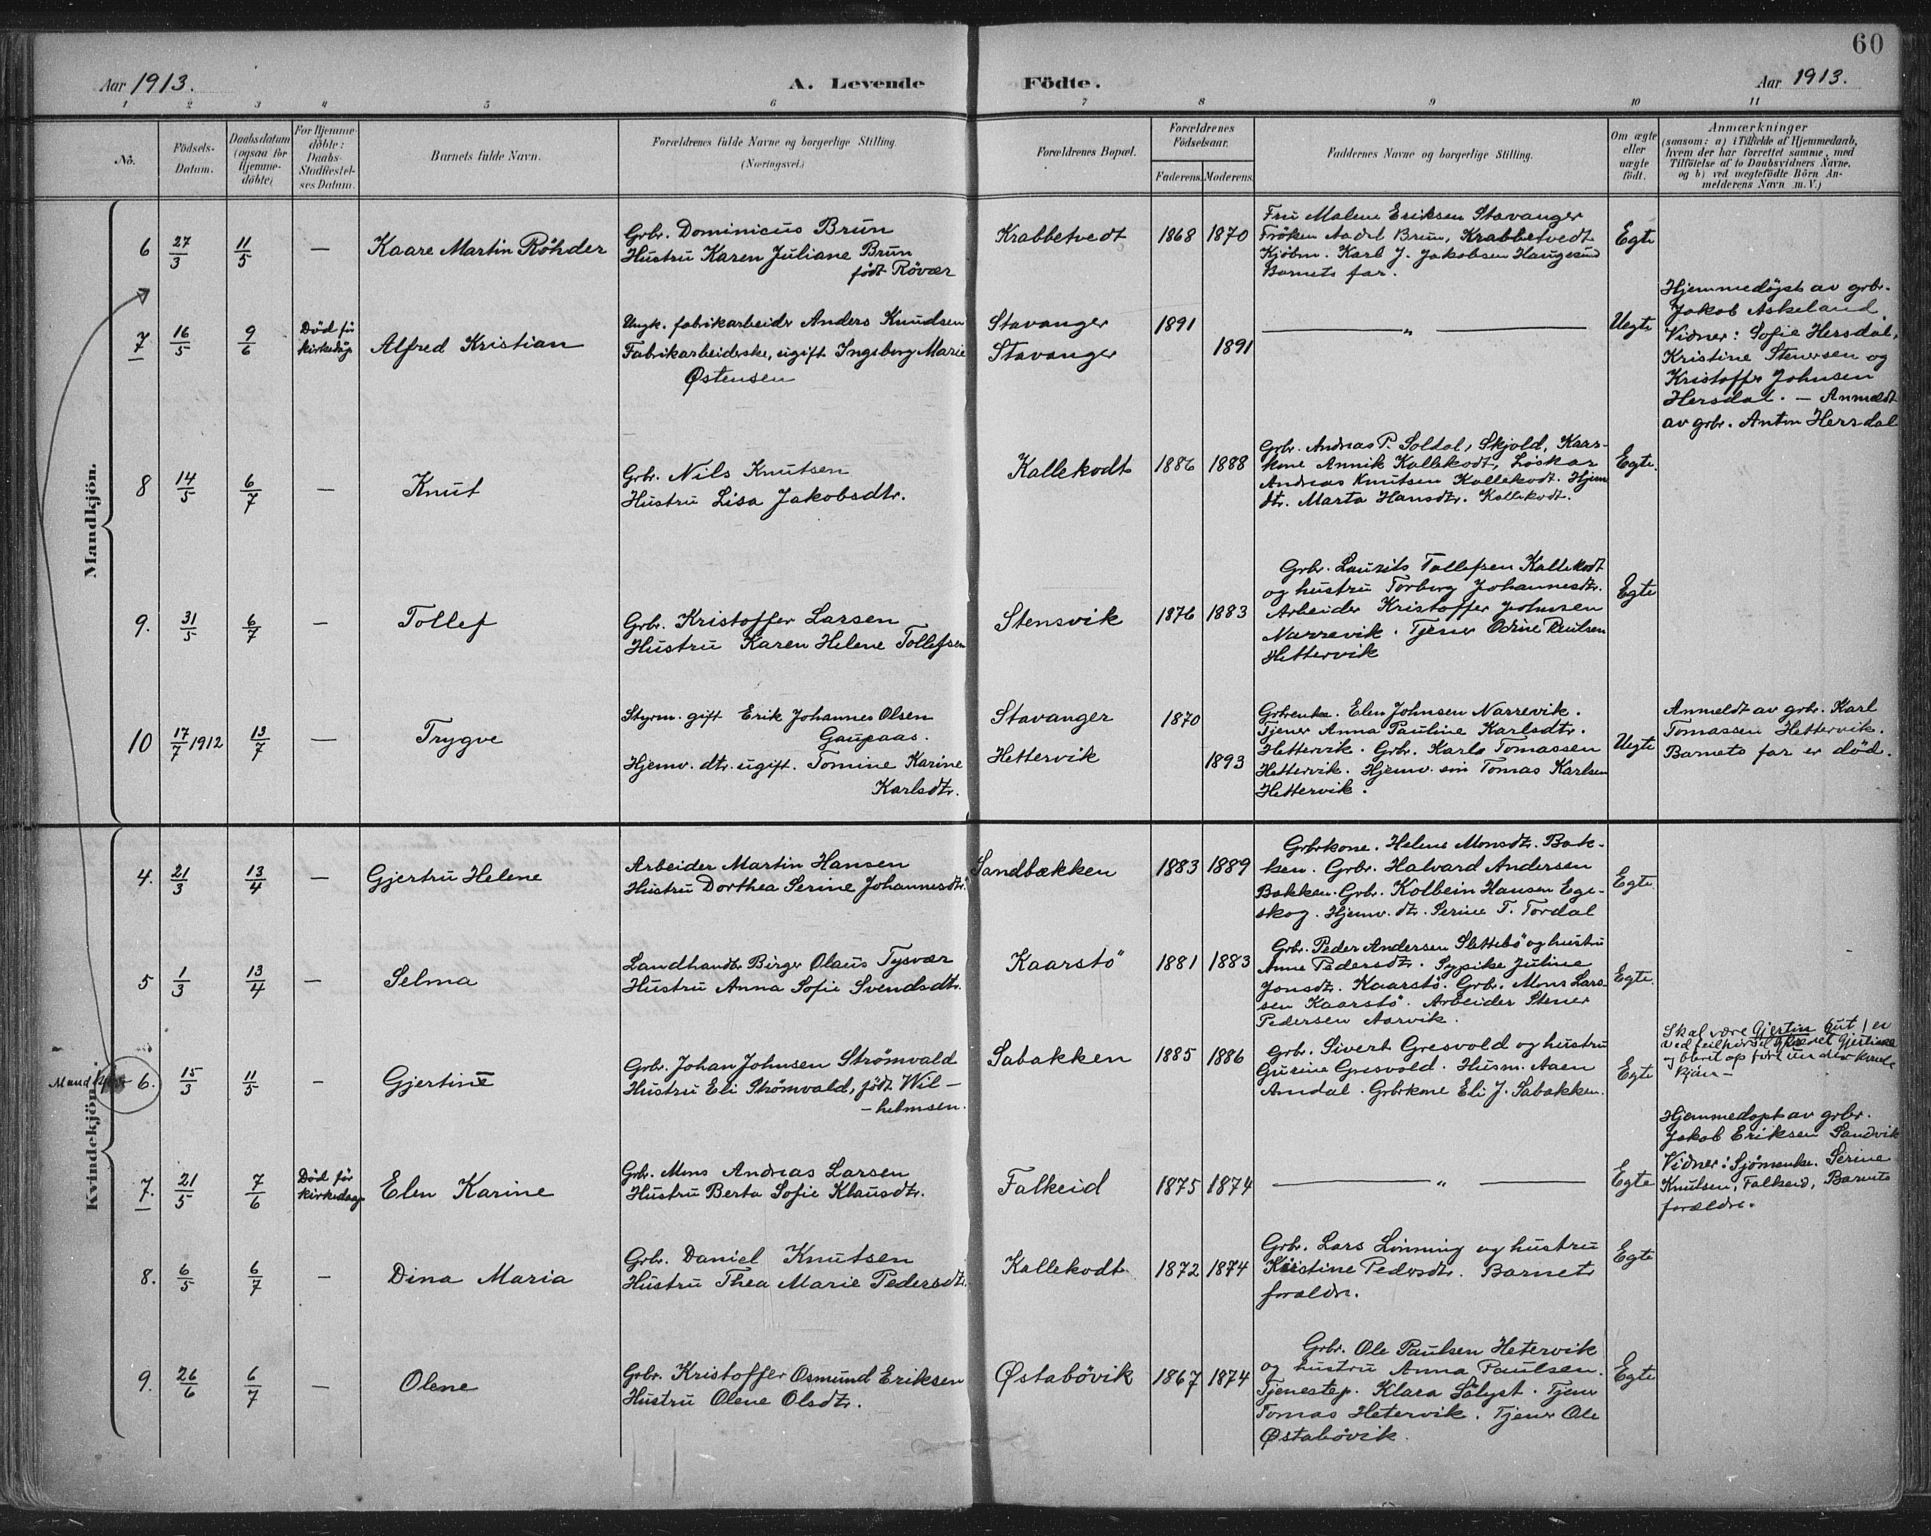 60
Aar 1913.
A. Levende
Födte.
Aar 1913.
1 2 3 4 5 6 7 8 9 10 11
No.
Födsels-
Datum.
Daabsdatum
(ogsaa for
Hjemme-
döbte)
For Hjemme-
döbte:
Daabs-
Stadfæstel-
ses Datum.
Barnets fulde Navn.
Forældrenes fulde Navne og borgerlige Stilling.
(Næringsvei.)
Forældrenes Bopæl.
Forældrenes
Födselsaar.
Faderens.
Moderens.
Faddernes Navne og borgerlige Stilling.
Om ægte
eller
uægte
födt.
Anmærkninger
(saasom: a) i Tilfælde af Hjemmedaab,
hvem der har forrettet samme, med
Tilföielse af to Daabsvidners Navne,
og b) ved uægtefödte Börn An-
melderens Navn m. V.)
Mandkjön.
6
27/3
11/5
—
Kaare Martin Röhder
Grbr. Dominicus Brun
Hustru Karen Juliane Brun
født Rövær
Krabbetvedt
1868
1870
Fru Malene Eriksen Stavanger
Fröken Brun, Krabbetvedt
Kjöbm. Karl J. Jakobsen Haugesund
Barnets far.
Egte
7
16/5
9/6
Död för
kirkedåp
Alfred Kristian
Ungk. fabrikarbeider Anders Knudsen
Fabrikarbeiderske, ugift Ingeborg Marie
Østensen
Stavanger
Stavanger
1891
1891
— „ —
Uegte
Hjemmedöpt av grbr.
Jakob Askeland.
Vidner: Sofie Hersdal,
Kristine Stenersen og
Kristoffer Johnsen
Hersdal. — Anmeldt
av grbr. Anton Hersdal
8
14/5
6/7
—
Knut
Grbr. Nils Knutsen
Hustru Lisa Jakobsdtr.
Kallekodt
1886
1888
Grbr. Andreas P. Soldal, Skjold, Kaar-
kone Annik Kallekodt, Löskar
Andreas Knutsen Kallekodt. Hjem
dtr. Marta Hansdtr. Kallekodt.
Egte.
9.
31/5
6/7
—
Tollef
Grbr. Kristoffer Larsen
Hustru Karen Helene Tollefsen
Stensvik
1876
1883
Grbr. Laurits Tollefsen Kallekodt
og hustru Torborg Johannesdtr.
Arbeider Kristoffer Johnsen
Narrevik. Tjener Odine
Hettervik
Egte
10
17/7 1912
13/7
—
Trygve
Styrm. gift Erik Johannes Olsen
Gaupaas.
Hjemv. dtr. ugift. Tomine Karine
Karlsdtr.
Stavanger
Hettervik
1870
1893
Grbrenke. Elen Johnsen Narrevik.
Tjener Anna Pauline Karlsdtr.
Hettervik. Grbr. Karl Tomassen
Hettervik. Hjemv. sön Tomas Karlsen
Hettervik.
Uegte
Anmeldt av grbr. Karl
Tomassen Hettervik.
Barnets far er död.
Kvindekjön.
4.
21/3
13/4
—
Gjertru Helene
Arbeider Martin Hansen
Hustru Dorthea Serine Johannesdtr.
Sandbækken
1883
1889
Grbrkone. Helene Monsdtr. Bak-
ken. Grbr. Halvard Andersen
Bakken. Grbr. Kolbein Hansen Ege-
skog. Hjemv. dtr. Serine T. Tordal
Egte
5
1/3
13/4
—
Selma
Landhandlr. Birger Olaus Tysvær
Hustru Anna Sofie Svendsdtr.
Kaarstö
1881
1883
Grbr. Peder Andersen Slettebö og hustru
Anne Pedersdtr. Sypike Juline
Jonsdtr. Kaarstö. Grbr. Mons Lars-
sen Kaarstö. Arbeider Stener
Pedersen Aarvik.
Egte.
6.
15/3
11/5
Gjertine
Grbr. Johan Johnsen Strömvald
Hustru Eli Strömvald, födt Wil-
-helmsen.
Sabakken
1885
1886
Grbr. Sivert Gresvold og hustru
Gurine Gresvold. Husm. Aaen
Amdal. Grbrkone Eli J. Sabakken.
Egte
Skal være Gjertin Gut / er
ved feilhörsel
og blevet op fört under kvinde
kjön —
7.
21/5
7/6
Död för
kirkedaap
Elen Karine
Grbr. Mons Andreas Larsen
Hustru Berta Sofie Klausdtr.
Falkeid
1875
1874
— „ —
Egte
Hjemmedöpt av grbr.
Jakob Eriksen Sandvik
Vidner: Sjömenke. Serine
Knutsen, Falkeid, Barnets
forældre.
8.
6/5
6/7
—
Dina Maria
Grbr. Daniel Knutsen
Hustru Thea Marie Pedersdtr.
Kallekodt
1872
1874
Grbr. Lars Lönning og hustru
Kristine Pedersdtr. Barnets
forældre.
Egte
9.
26/6
6/7
—
Olene
Grbr. Kristoffer Osmund Eriksen
Hustru Olene Olsdtr.
Østabövik
1867
1874
Grbr. Ole Paulsen Hetervik
og hustru Anna Paulsen.
Tjenestep. Klara Sölyst. Tjener
Tomas Hetervik. Tjener Ole
Østabövik.
Egte